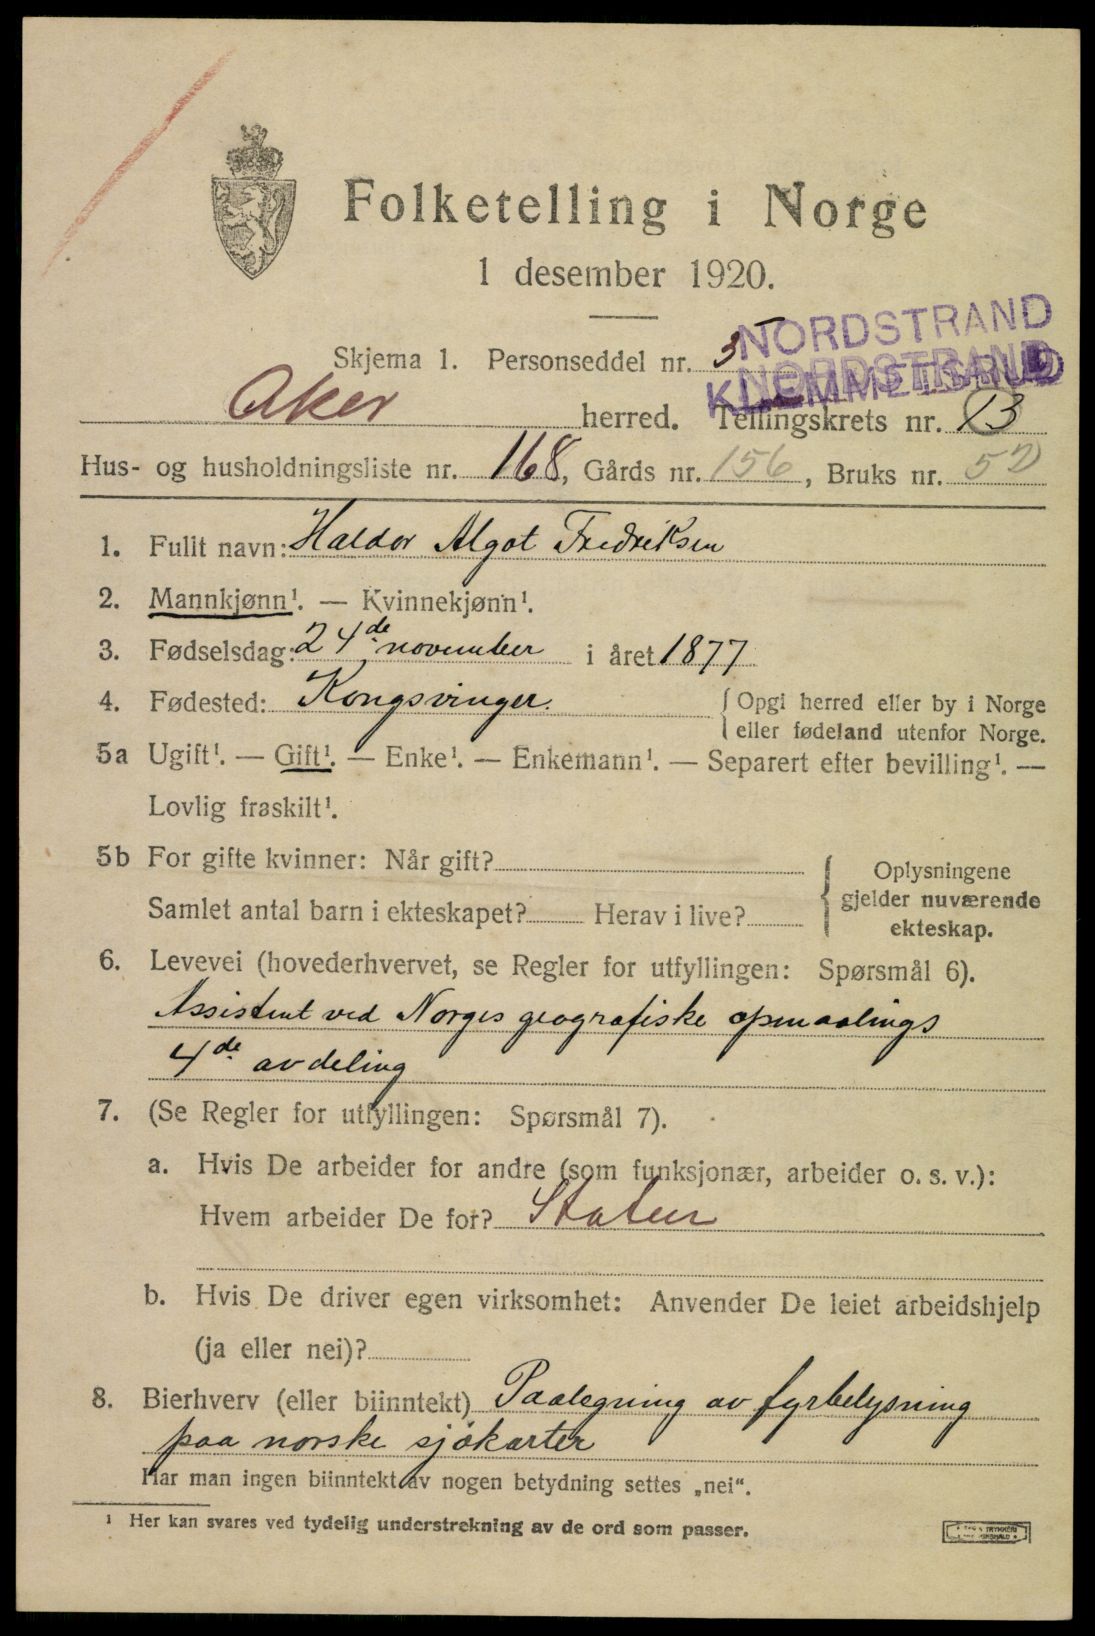 Folketelling i Norge
1 desember 1920.
NORDSTRAND
Skjema 1. Personseddel nr.
NORDSTRAND
KLEMMETSRUD
Aker herred. Tellingskrets nr. 13
Hus- og husholdningsliste nr. 168, Gårds nr. 156, Bruks nr. 52
1. Fullt navn: Haldor Algot Fredriksen
2. Mannkjønn¹. — Kvinnekjønn¹.
3. Fødselsdag: 24de november i året 1877
4. Fødested: Kongsvinger. { Opgi herred eller by i Norge
eller fødeland utenfor Norge.
5a Ugift¹. — Gift¹. — Enke¹. — Enkemann¹. — Separert efter bevilling¹. —
Lovlig fraskilt¹.
5b For gifte kvinner: Når gift?
Samlet antal barn i ekteskapet? Herav i live?
Oplysningene
gjelder nuværende
ekteskap.
6. Levevei (hovederhvervet, se Regler for utfyllingen: Spørsmål 6).
Assistent ved Norges geografiske opmaalings
4de avdeling
7. (Se Regler for utfyllingen: Spørsmål 7).
a. Hvis De arbeider for andre (som funksjonær, arbeider o. s. v.):
Hvem arbeider De for? Staten
b. Hvis De driver egen virksomhet: Anvender De leiet arbeidshjelp
(ja eller nei)?
8. Bierhverv (eller biinntekt) Paalegning av fyrbelysning
paa norske sjökarter
Har man ingen biinntekt av nogen betydning settes „nei“.
¹ Her kan svares ved tydelig understrekning av de ord som passer.